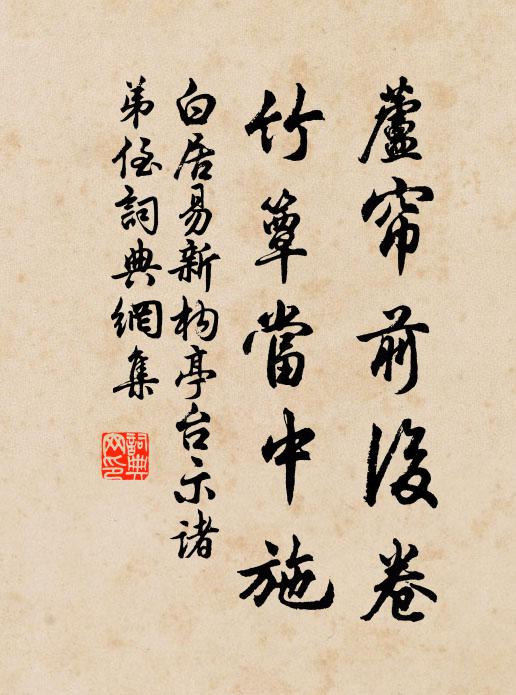 蘆帘前後卷
竹簟當中施
白居易新构亭台示諸
弟侄詞典網集
詞典网印